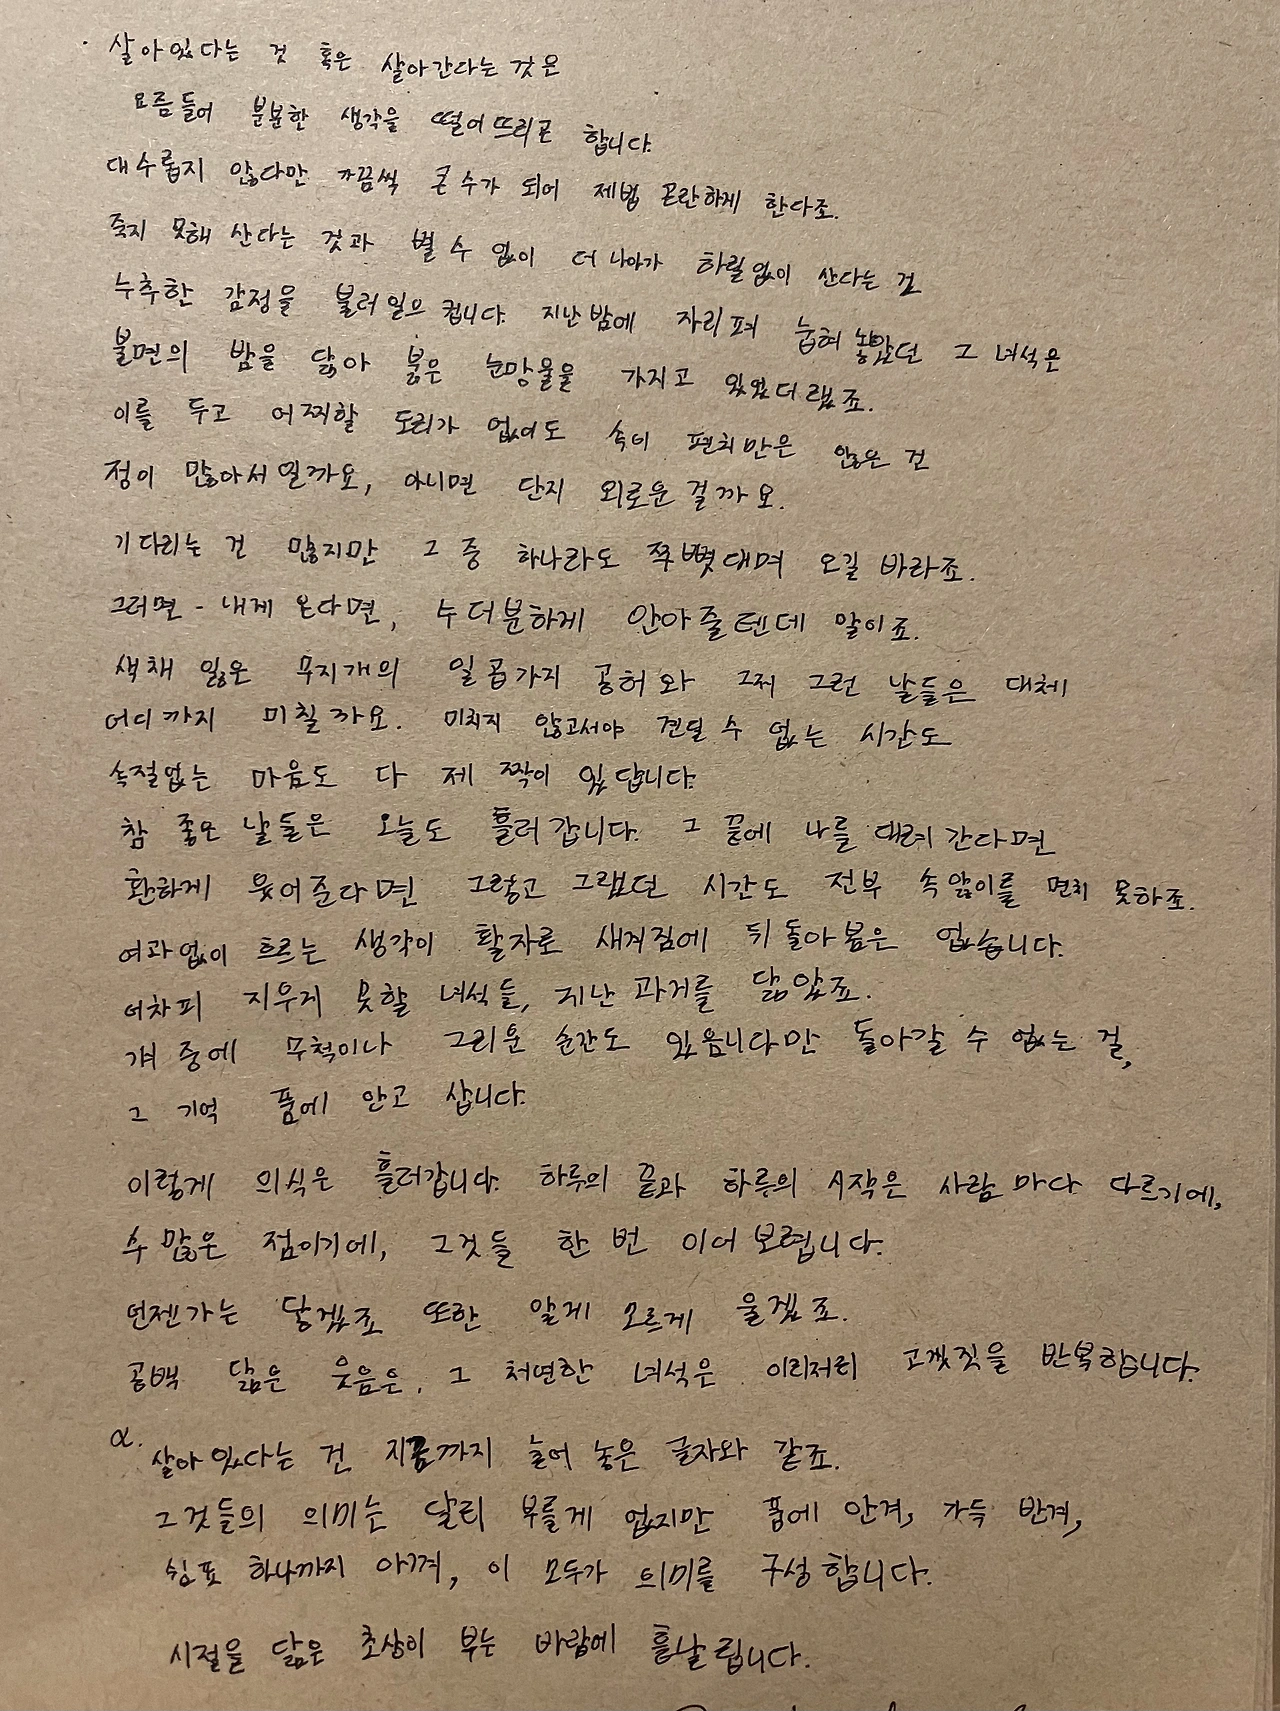 · 살아있다는 것 혹은 살아간다는 것은
요즘들어 분분한 생각을 떨어뜨리곤 합니다.
대수롭지 않다만 가끔씩 큰 수가 되어 제법 곤란하게 한다죠.
죽지 못해 산다는 것과 별 수 없이 더 나아가 하릴없이 산다는 건
누추한 감정을 불러일으킵니다. 지난밤에 자리 펴 눕혀 놓았던 그 녀석은
불면의 밤을 닮아 붉은 눈망울을 가지고 있었더랬죠.
이를 두고 어찌할 도리가 없어도 속이 편치만은 않은 건
정이 많아서일까요, 아니면 단지 외로운 걸까요.
기다리는 건 많지만 그 중 하나라도 쭈뼛대며 오길 바라죠.
그러면 - 내게 온다면, 수더분하게 안아줄텐데 말이죠.
색채 잃은 무지개의 일곱가지 공허와 그저 그런 날들은 대체
어디까지 미칠까요. 미치지 않고서야 견딜 수 없는 시간도
속절없는 마음도 다 제 짝이 있답니다.
참 좋은 날들은 오늘도 흘러갑니다. 그 끝에 나를 데려간다면
환하게 웃어준다면 그렇고 그랬던 시간도 전부 속앓이를 면치 못하죠.
여과없이 흐르는 생각이 활자로 새겨짐에 뒤돌아봄은 없습니다.
어차피 지우지 못할 녀석들, 지난 과거를 닮았죠.
개 중에 무척이나 그리운 순간도 있읍니다만 돌아갈 수 없는 걸,
그 기억 품에 안고 삽니다.
이렇게 의식은 흘러갑니다. 하루의 끝과 하루의 시작은 사람마다 다르기에,
수 많은 점이기에, 그것들 한 번 이어보렵니다.
언젠가는 닿겠죠 또한 알게 모르게 울겠죠.
공백 닮은 웃음은, 그 처연한 녀석은 이리저리 고갯짓을 반복합니다.
α. 살아있다는 건 지금까지 늘어 놓은 글자와 같죠.
그것들의 의미는 달리 부를게 없지만 품에 안겨, 가득 반겨,
쉼표 하나까지 아껴, 이 모두가 의미를 구성합니다.
시절을 닮은 초상이 부는 바람에 흩날립니다.